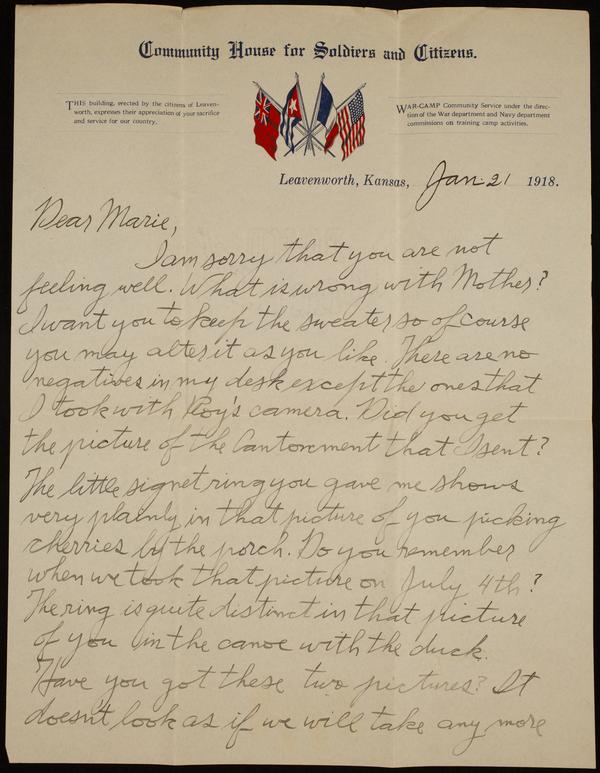 Community House for Soldiers and Citizens.
THIS building, erected by the citizens of Leaven-
worth, expresses their appreciation of your sacrifice
and service for our country.
WAR-CAMP Community Service under the direc-
tion of the War department and Navy department
commissions on training camp activities.
Leavenworth, Kansas, Jan. 21 1918.
Dear Marie,
I am sorry that you are not
feeling well. What is wrong with Mother?
I want you to keep the sweater so of course
you may alter it as you like. There are no
negatives in my desk except the ones that
I took with Roy's camera. Did you get
the picture of the Cantonment that I sent?
The little signet ring you gave me shows
very plainly in that picture of you picking
cherries by the porch. Do you remember
when we took that picture on July 4th?
The ring is quite distinct in that picture
of you in the canoe with the duck.
Have you got these two pictures? It
doesn't look as if we will take any more